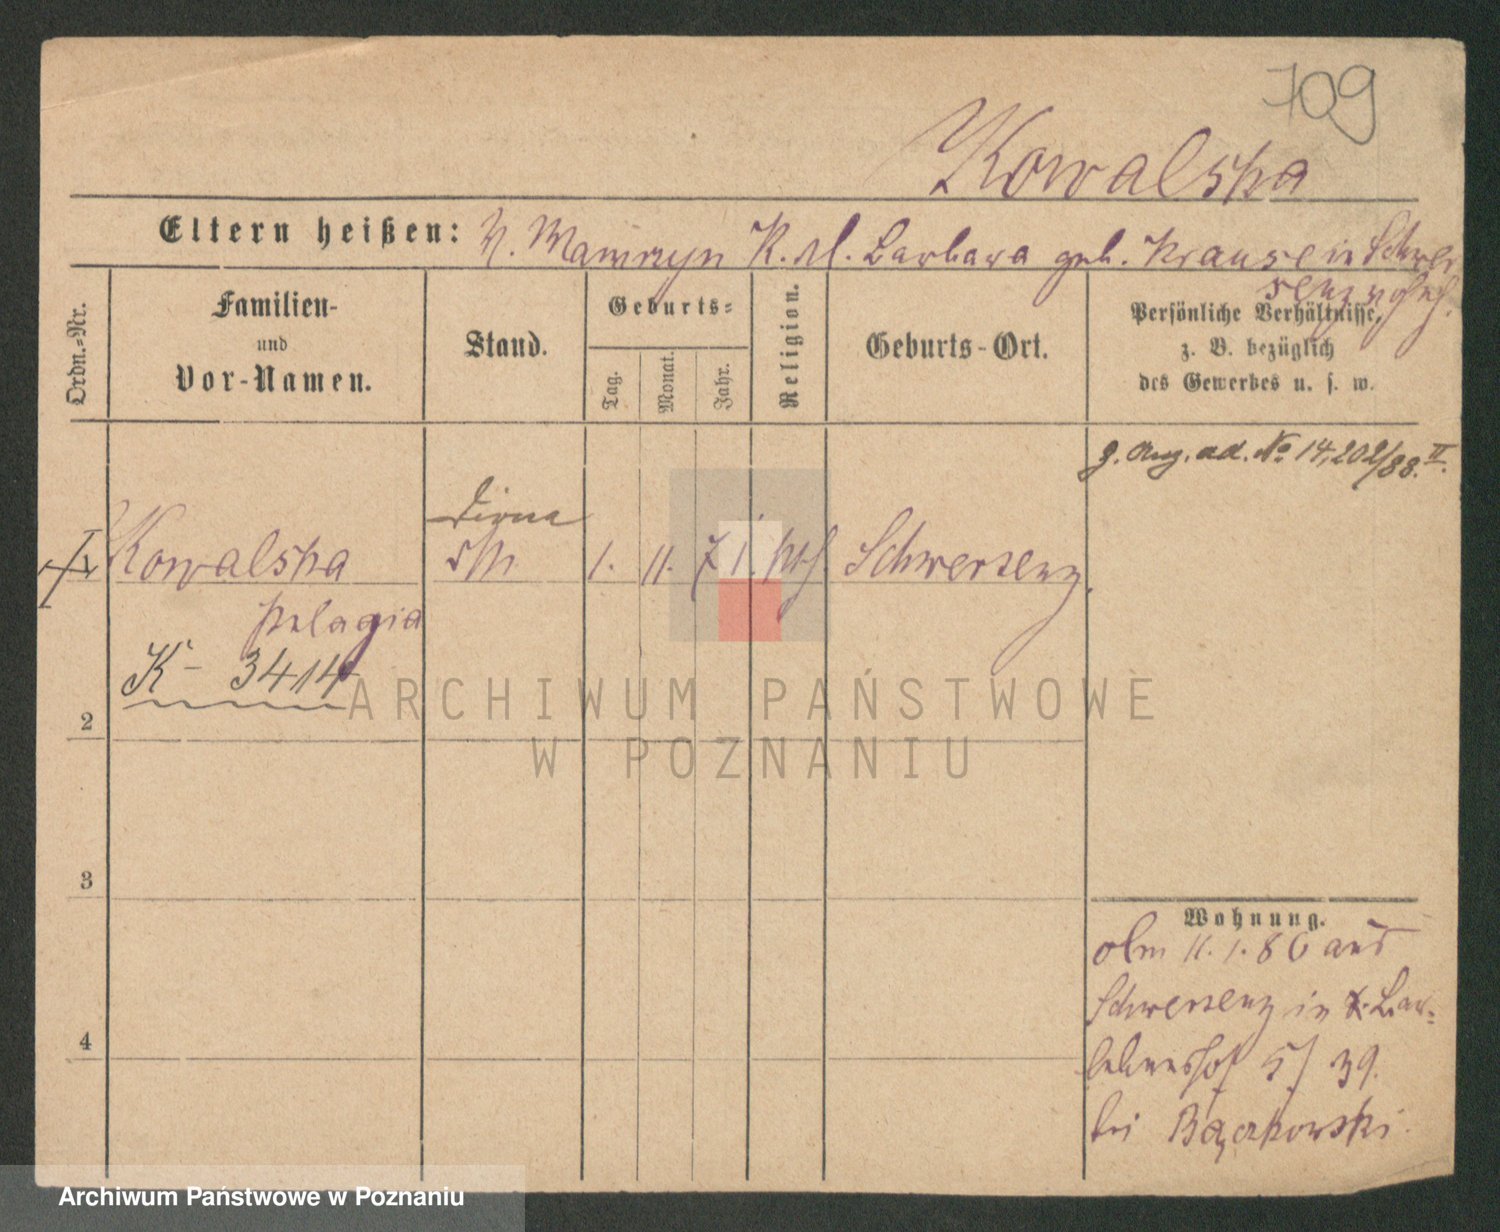 709
Kowalska
Eltern heißen: V. Wawrzyn K. M. Barbara geb. Krause in Schwer
senz wohnh.
Ordn.-Nr.
Familien-
und
Vor-Namen.
Stand.
Geburts-
Tag.
Monat.
Jahr.
Religion.
Geburts-Ort.
Persönliche Verhältnisse,
z. B. bezüglich
des Gewerbes u. s. w.
g. Ang. ad. No 14,202/88. II.
Dirne
Kowalska 1. 11. 71. kth. Schwersenz.
Pelagia
K- 3414
2
3
4
Wohnung.
11. 1. 86 aus
Schwersenz in
5/39.
bei Bączkowski.
ARCHIWUM PAŃSTWOWE
W POZNANIU
Archiwum Państwowe w Poznaniu